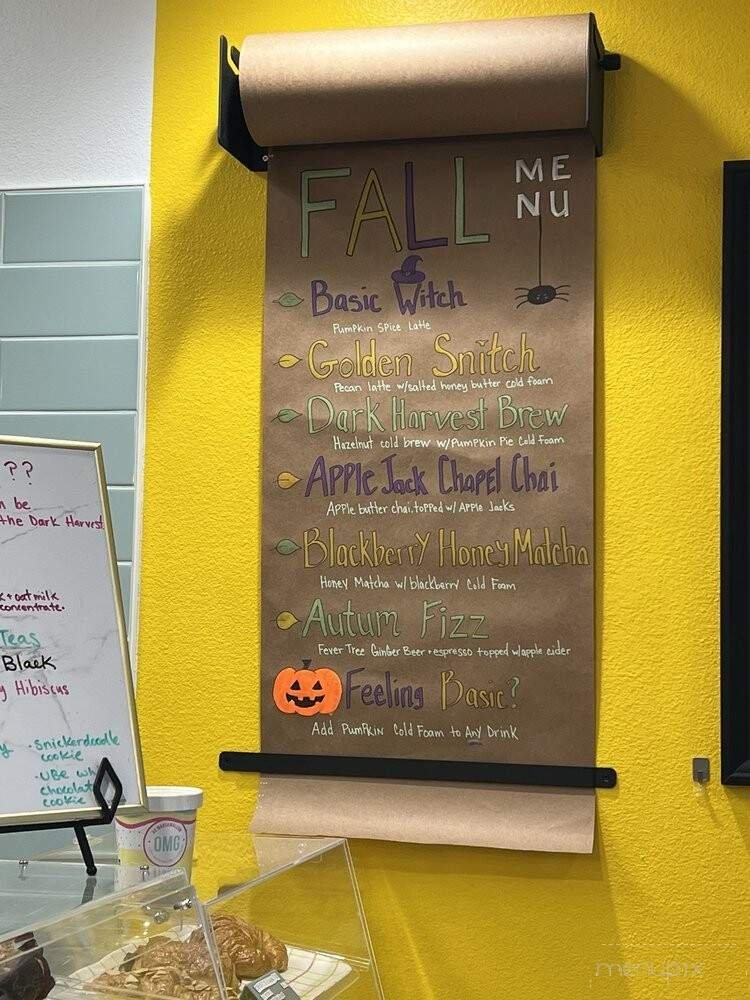 FALL
ME
NU
Basic Witch
Pumpkin Spice Latte
Golden Snitch
Pecan latte w/salted honey butter cold foam
Dark Harvest Brew
Hazelnut cold brew w/Pumpkin Pie Cold foam
Apple Jack Chapel Chai
Apple butter chai.topped w/ Apple Jacks
Blackberry Honey Matcha
Honey Matcha w/ blackberry Cold Foam
Autum Fizz
Fever Tree Ginger Beer + espresso topped w/apple cider
Feeling Basic?
Add Pumpkin Cold Foam to Any Drink
??
be
the Dark Harvest
+ oat milk
concentrate.
Teas
Black
Hibiscus
• Snickerdoodle
cookie
• UBe
chocolate
cookie
OMG
menupix